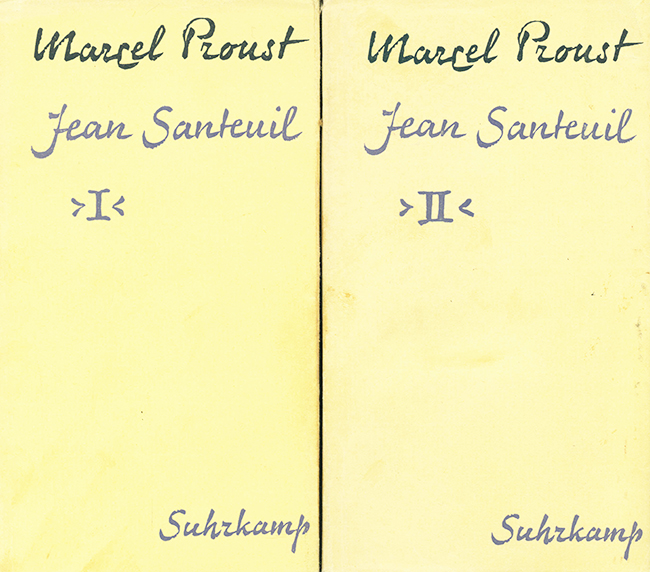 Marcel Proust
Jean Santeuil
>I<
Suhrkamp
Marcel Proust
Jean Santeuil
>II<
Suhrkamp